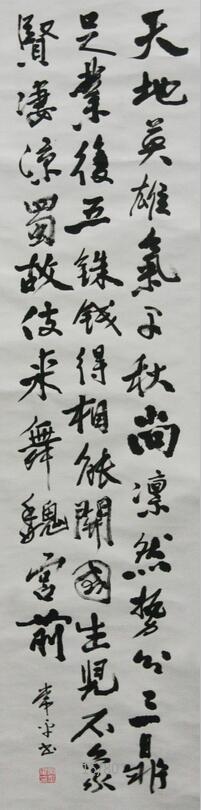 天地英雄氣千秋尚凜然勢分三鼎
足業復五銖錢得相能開國生兒不象
賢淒涼蜀故伎来舞魏宮前
书